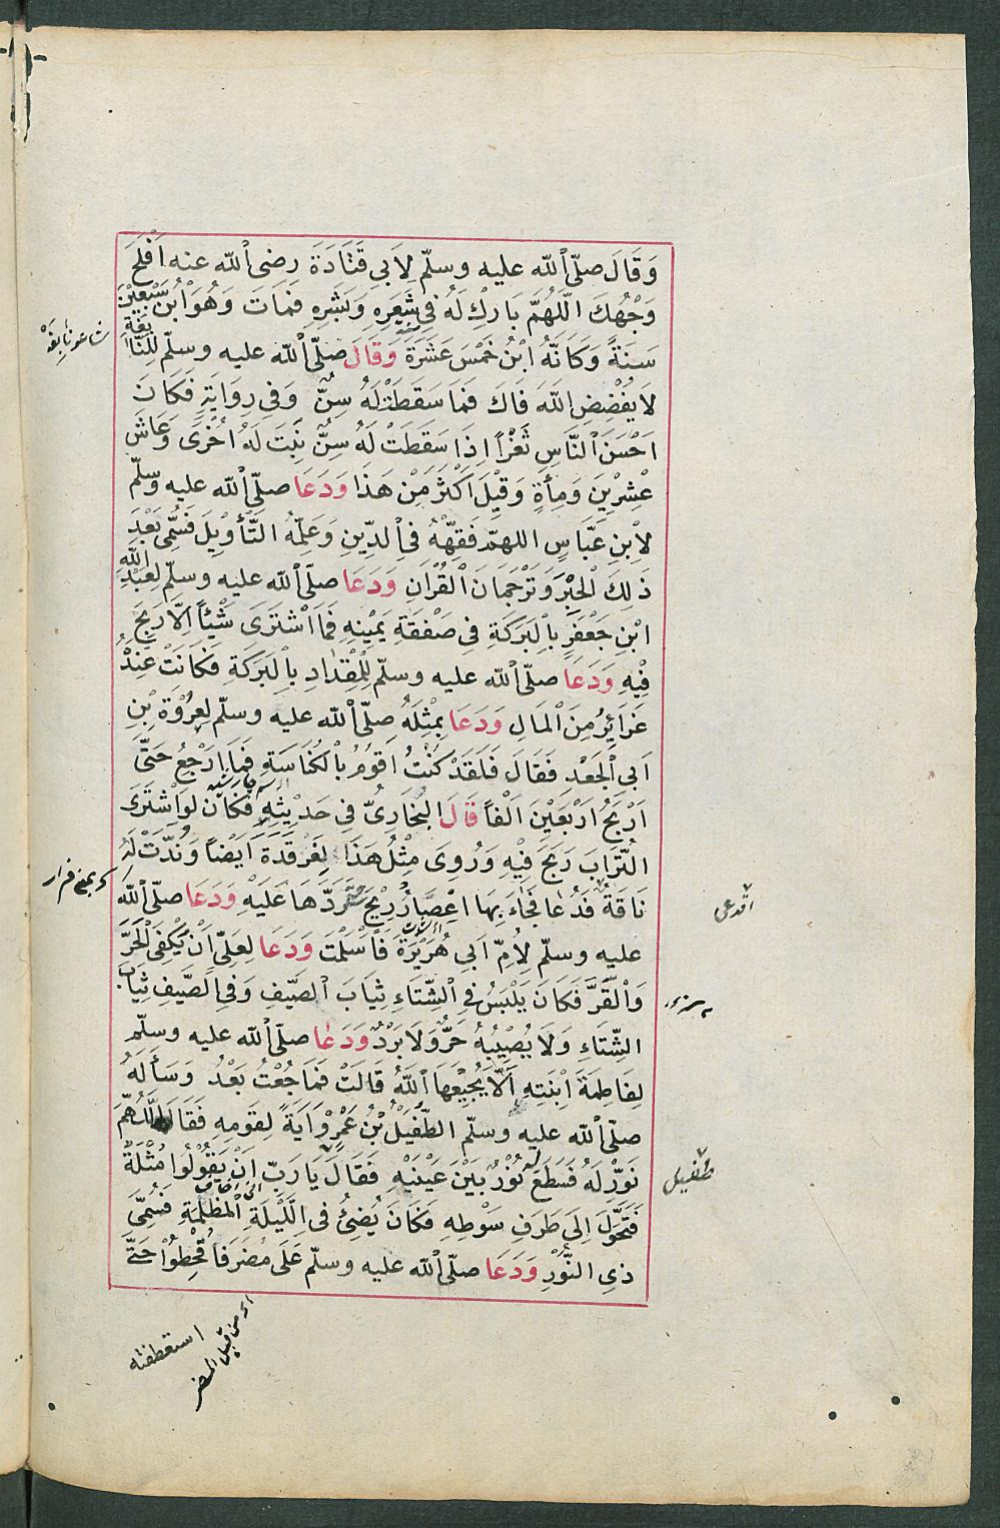 وَقَالَ صلّى اللّه عليه وسلّم لِاَبِي قَتَادَةَ رضى اللّه عنه اَفْلَحَ
وَجْهُكَ اللّهُمَّ بَارِكْ لَهُ فِي شَعَرِهِ وَبَشَرِهِ فَمَاتَ وَهُوَ ابْنُ سَبْعِيْنَ
سَنَةً وَكَاَنَّهُ ابْنُ خَمْسَ عَشَرَةَ وَقَالَ صلّى اللّه عليه وسلّم لِلنَّابِغَةِ
لَا يَفْضُضِ اللّهَ فَاكَ فَمَا سَقَطَتْ لَهُ سِنٌّ وَفِي رِوَايَةٍ فَكَانَ
اَحْسَنَ النَّاسِ ثَغْرًا اِذَا سَقَطَتْ لَهُ سِنٌّ نَبَتَ لَهُ اُخْرَى وَعَاشَ
عِشْرِيْنَ وَمِأَةٍ وَقِيْلَ اَكْثَرَ مِنْ هَذَا وَدَعَا صلّى اللّه عليه وسلّم
لِابْنِ عَبَّاسٍ اللهمّ فَقِّهْهُ فِي الدِّيْنِ وَعَلِّمْهُ التَّأْوِيْلَ فَسُمِّيَ بَعْدَ
ذَلِكَ الْحِبْرَ وَتَرْجَمَانَ الْقُرْانِ وَدَعَا صلّى اللّه عليه وسلّم لِعَبْدِ اللّهِ
ابْنِ جَعْفَرٍ بِالْبَرَكَةِ فِي صَفْقَةِ يَمِيْنِهِ فَمَا اشْتَرَى شَيْئًا اِلَّا رَبِحَ
فِيْهِ وَدَعَا صلّى اللّه عليه وسلّم لِلْمِقْدَادِ بِالْبَرَكَةِ فَكَانَتْ عِنْدَهُ
غَرَائِرُ مِنَ الْمَالِ وَدَعَا بِمِثْلِهُ صلّى اللّه عليه وسلّم لِعُرْوَةَ بْنِ
اَبِي الْجَعْدِ فَقَالَ فَلَقَدْ كُنْتُ اَقُوْمُ بِالْكُنَاسَةِ فَمَا اَرْجِعُ حَتَّى
اَرْبَحُ اَرْبَعِيْنَ اَلْفًا قَالَ الْبُخَارِيُّ فِي حَدِيْثِهِ فَكَانَ لَوِ اشْتَرَى
التُّرَابَ رَبِحَ فِيْهِ وَرُوِيَ مِثْلُ هَذَا لِغَرْقَدَةَ اَيْضًا وَنُدَّتْ لَهُ
نَاقَةٌ فَدَعَا فَجَاءَ بِهَا اِعْصَارُ رِيْحٍ حَتَّى رَدَّهَا عَلَيْهِ وَدَعَا صلّى اللّه
عليه وسلّم لِاُمِّ اَبِي هُرَيْرَةَ فَاَسْلَمَتْ وَدَعَا لِعَلِيٍّ اَنْ يُكْفَى الْحَرَّ
وَالْقَرَّ فَكَانَ يَلْبَسُ فِي الشِّتَاءِ ثِيَابَ الصَّيْفِ وَفِي الصَّيْفِ ثِيَابَ
الشِّتَاءِ وَلَا يُصِيْبُهُ حَرٌّ وَلَا بَرْدٌ وَدَعَا صلّى اللّه عليه وسلّم
لِفَاطِمَةَ اِبْنَتِهِ اَلَّا يُجِيْعَهَا اللّهُ قَالَتْ فَمَا جُعْتُ بَعْدُ وَسَأَلَهُ
صلّى اللّه عليه وسلّم الطُّفَيْلُ بْنُ عَمْرٍو اَيَةً لِقَوْمِهِ فَقَالَ اللّهُمَّ
نَوِّرْ لَهُ فَسَطَعَ نُوْرٌ بَيْنَ عَيْنَيْهِ فَقَالَ يَا رَبِّ اَنْ يَقُوْلُوا مُثْلَةٌ
فَتَحَوَّلَ اِلَى طَرَفِ سَوْطِهِ فَكَانَ يُضِئُ فِي اللَّيْلَةِ الْمُظْلِمَةِ فَسُمِّيَ
ذِي النُّوْرِ وَدَعَا صلّى اللّه عليه وسلّم عَلَى مُضَرَ فَاُقْحِطُوْا حَتَّى
طفيل
استعطفته